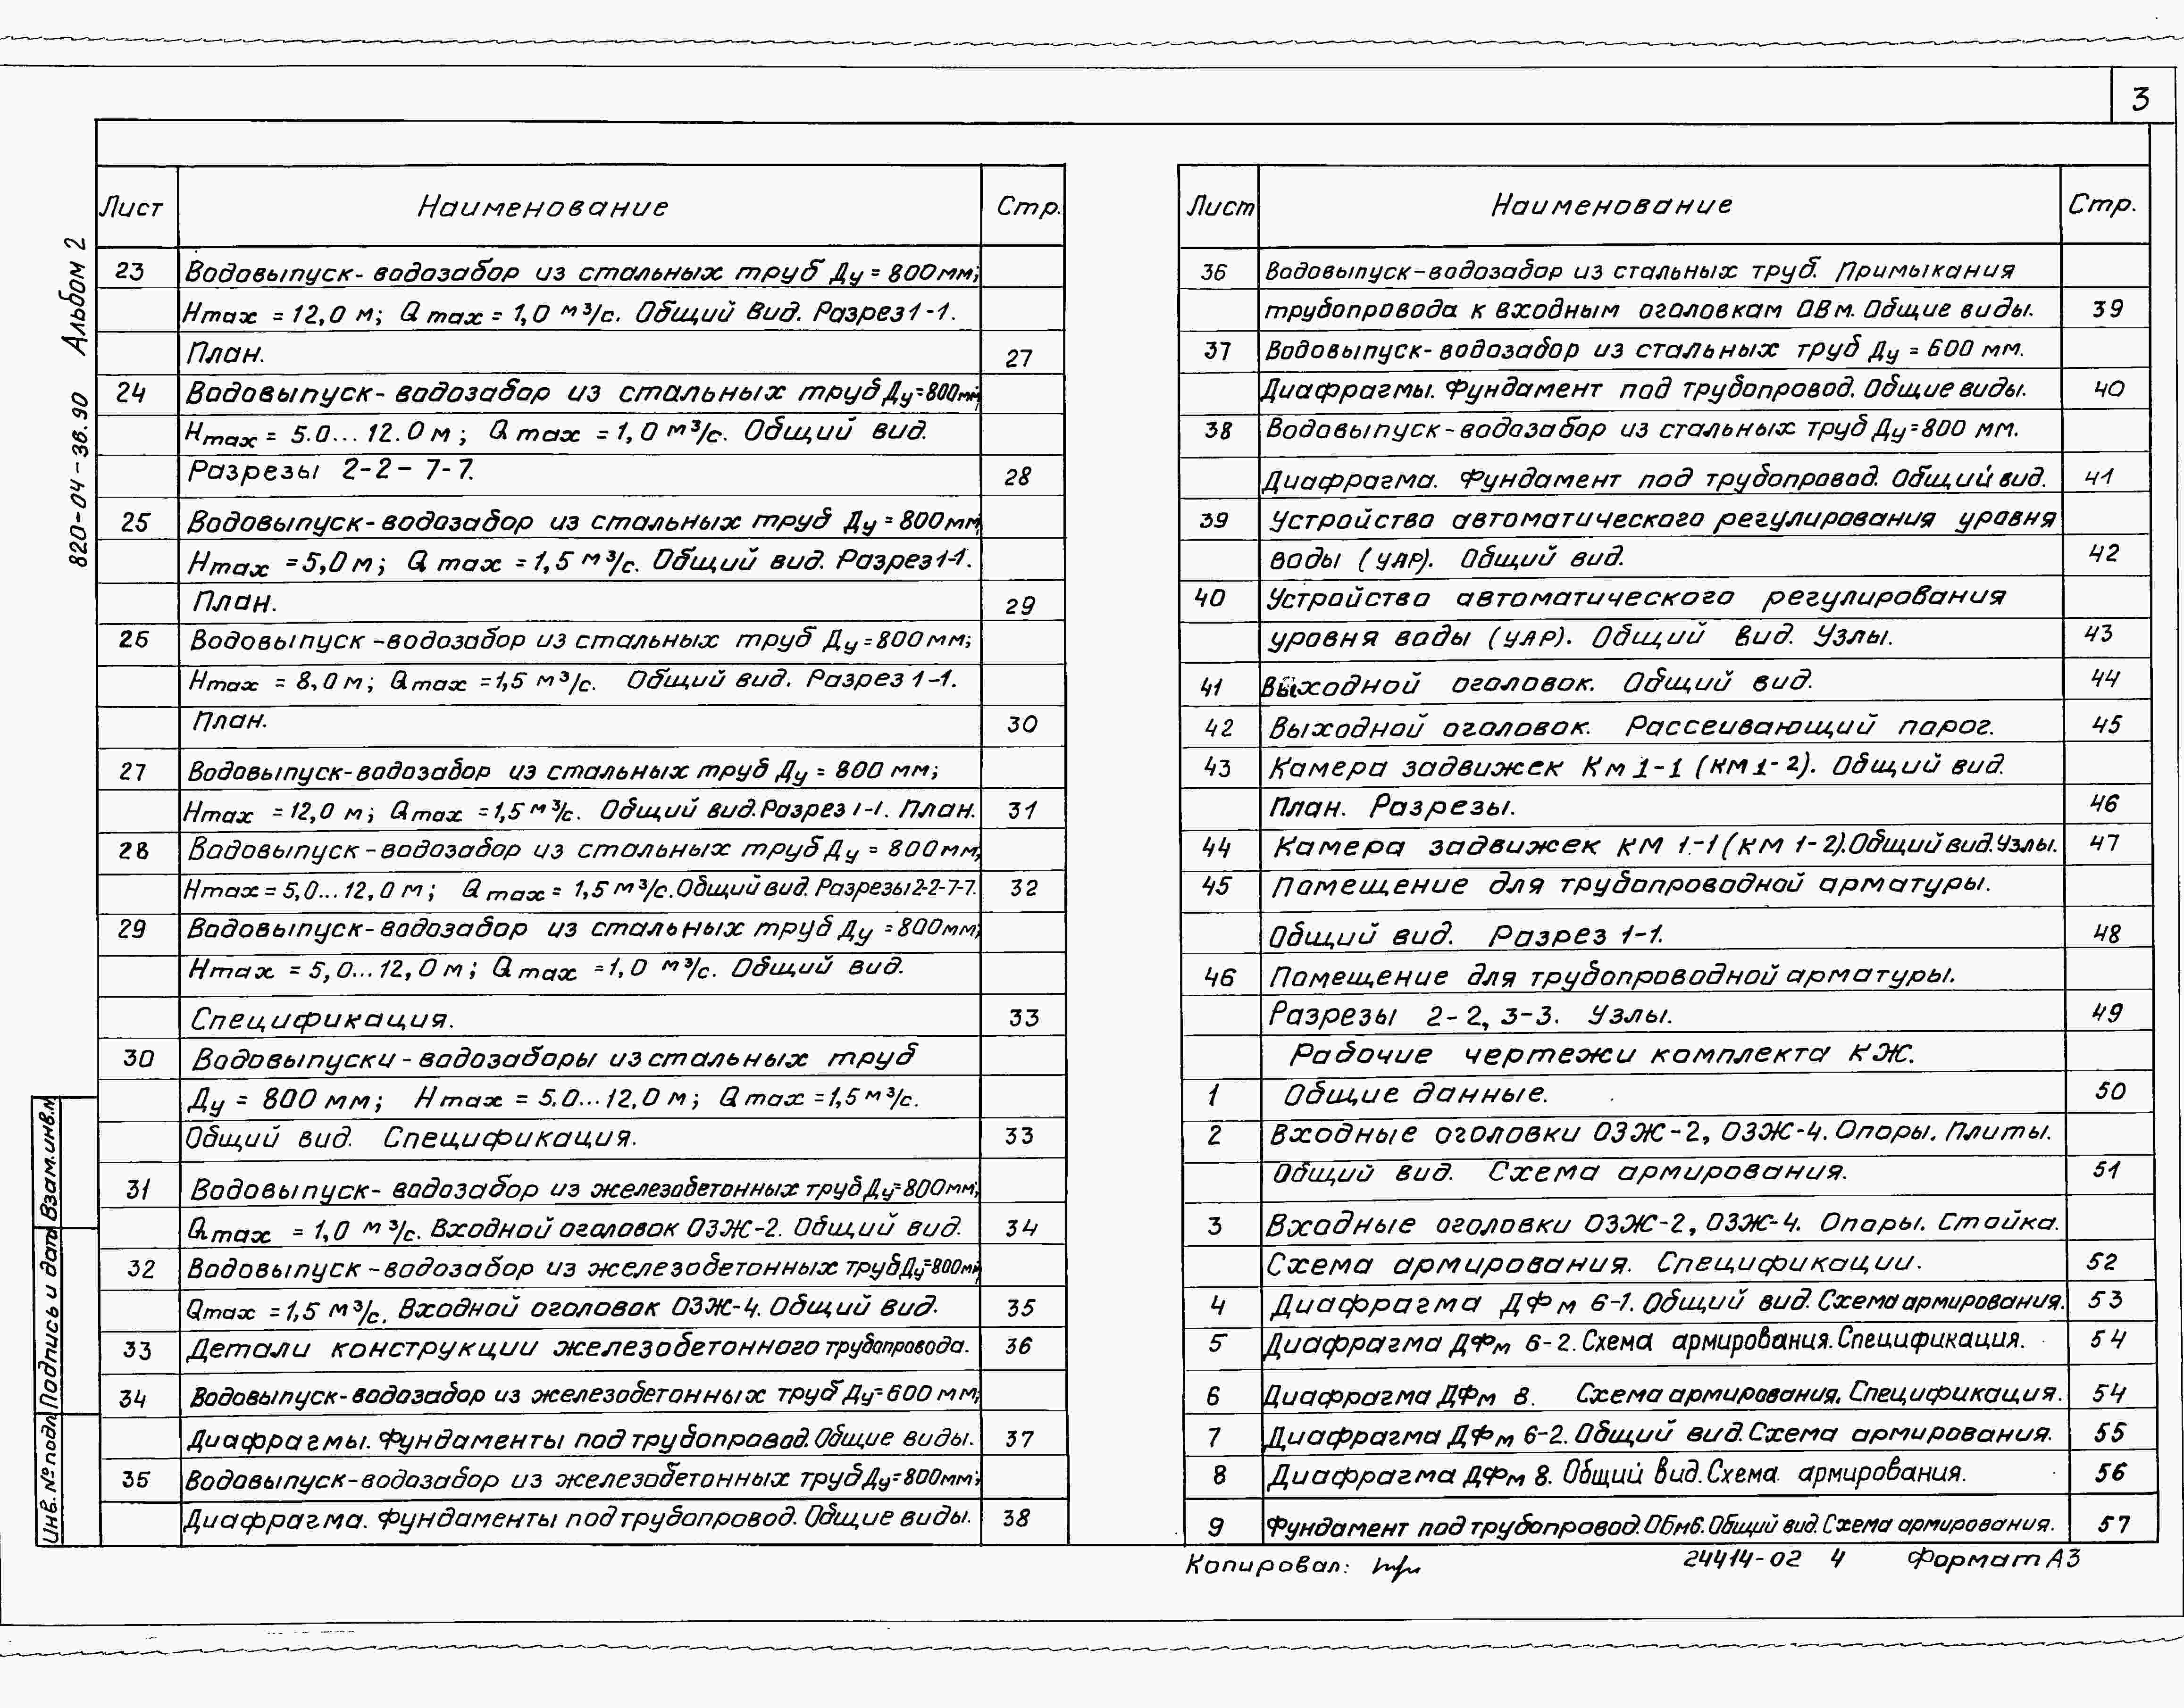 3
820-04-36.90 Альбом 2
Лист Наименование Стр.
23 Водовыпуск-водозабор из стальных труб Ду=800мм;
Hmax =12,0 м; Qmax=1,0 м³/с. Общий Вид. Разрез 1-1.
План. 27
24 Водовыпуск-водозабор из стальных труб Ду=800мм;
Hmax= 5.0...12.0м; Qmax =1,0 м³/с. Общий вид.
Разрезы 2-2- 7-7. 28
25 Водовыпуск-водозабор из стальных труб Ду=800мм;
Hmax =5,0м; Qmax =1,5 м³/с. Общий вид. Разрез 1-1.
План. 29
26 Водовыпуск-водозабор из стальных труб Ду=800мм;
Hmax = 8,0м; Qmax =1,5 м³/с. Общий вид. Разрез 1-1.
План. 30
27 Водовыпуск-водозабор из стальных труб Ду = 800 мм;
Hmax =12,0 м; Qmax =1,5 м³/с. Общий вид. Разрез 1-1. План. 31
28 Водовыпуск-водозабор из стальных труб Ду = 800мм;
Hmax=5,0...12,0м; Qmax= 1,5 м³/с. Общий вид. Разрезы 2-2-7-7. 32
29 Водовыпуск-водозабор из стальных труб Ду =800мм;
Hmax = 5,0...12,0м; Qmax =1,0 м³/с. Общий вид.
Спецификация. 33
30 Водовыпуски-водозаборы из стальных труб
Ду = 800 мм; Hmax = 5.0...12,0м; Qmax =1,5 м³/с.
Общий вид. Спецификация. 33
31 Водовыпуск-водозабор из железобетонных труб Ду=800мм;
Qmax = 1,0 м³/с. Входной оголовок ОЗЖ-2. Общий вид. 34
32 Водовыпуск-водозабор из железобетонных труб Ду=800мм;
Qmax =1,5 м³/с. Входной оголовок ОЗЖ-4. Общий вид. 35
33 Детали конструкции железобетонного трубопровода. 36
34 Водовыпуск-водозабор из железобетонных труб Ду=600мм;
Диафрагмы. Фундаменты под трубопровод. Общие виды. 37
35 Водовыпуск-водозабор из железобетонных труб Ду=800мм;
Диафрагма. Фундаменты под трубопровод. Общие виды. 38
Лист Наименование Стр.
36 Водовыпуск-водозабор из стальных труб. Примыкания
трубопровода к входным оголовкам ОВм. Общие виды. 39
37 Водовыпуск-водозабор из стальных труб Ду = 600 мм.
Диафрагмы. Фундамент под трубопровод. Общие виды. 40
38 Водовыпуск-водозабор из стальных труб Ду=800 мм.
Диафрагма. Фундамент под трубопровод. Общий вид. 41
39 Устройство автоматического регулирования уровня
воды (УАР). Общий вид. 42
40 Устройство автоматического регулирования
уровня воды (УАР). Общий вид. Узлы. 43
41 Выходной оголовок. Общий вид. 44
42 Выходной оголовок. Рассеивающий порог. 45
43 Камера задвижек Км 1-1 (КМ 1-2). Общий вид.
План. Разрезы. 46
44 Камера задвижек КМ 1.-1 (КМ 1-2). Общий вид. Узлы. 47
45 Помещение для трубопроводной арматуры.
Общий вид. Разрез 1-1. 48
46 Помещение для трубопроводной арматуры.
Разрезы 2-2, 3-3. Узлы. 49
Рабочие чертежи комплекта КЖ.
1 Общие данные. 50
2 Входные оголовки ОЗЖ-2, ОЗЖ-4. Опоры. Плиты.
Общий вид. Схема армирования. 51
3 Входные оголовки ОЗЖ-2, ОЗЖ-4. Опоры. Стойка.
Схема армирования. Спецификации. 52
4 Диафрагма ДФм 6-1. Общий вид. Схема армирования. 53
5 Диафрагма ДФм 6-2. Схема армирования. Спецификация. 54
6 Диафрагма ДФм 8. Схема армирования. Спецификация. 54
7 Диафрагма ДФм 6-2. Общий вид. Схема армирования. 55
8 Диафрагма ДФм 8. Общий вид. Схема армирования. 56
9 Фундамент под трубопровод. ОБм6. Общий вид. Схема армирования. 57
Инв. № подл. Подпись и дата Взам. инв. №
Копировал: 24414-02 4 Формат А3